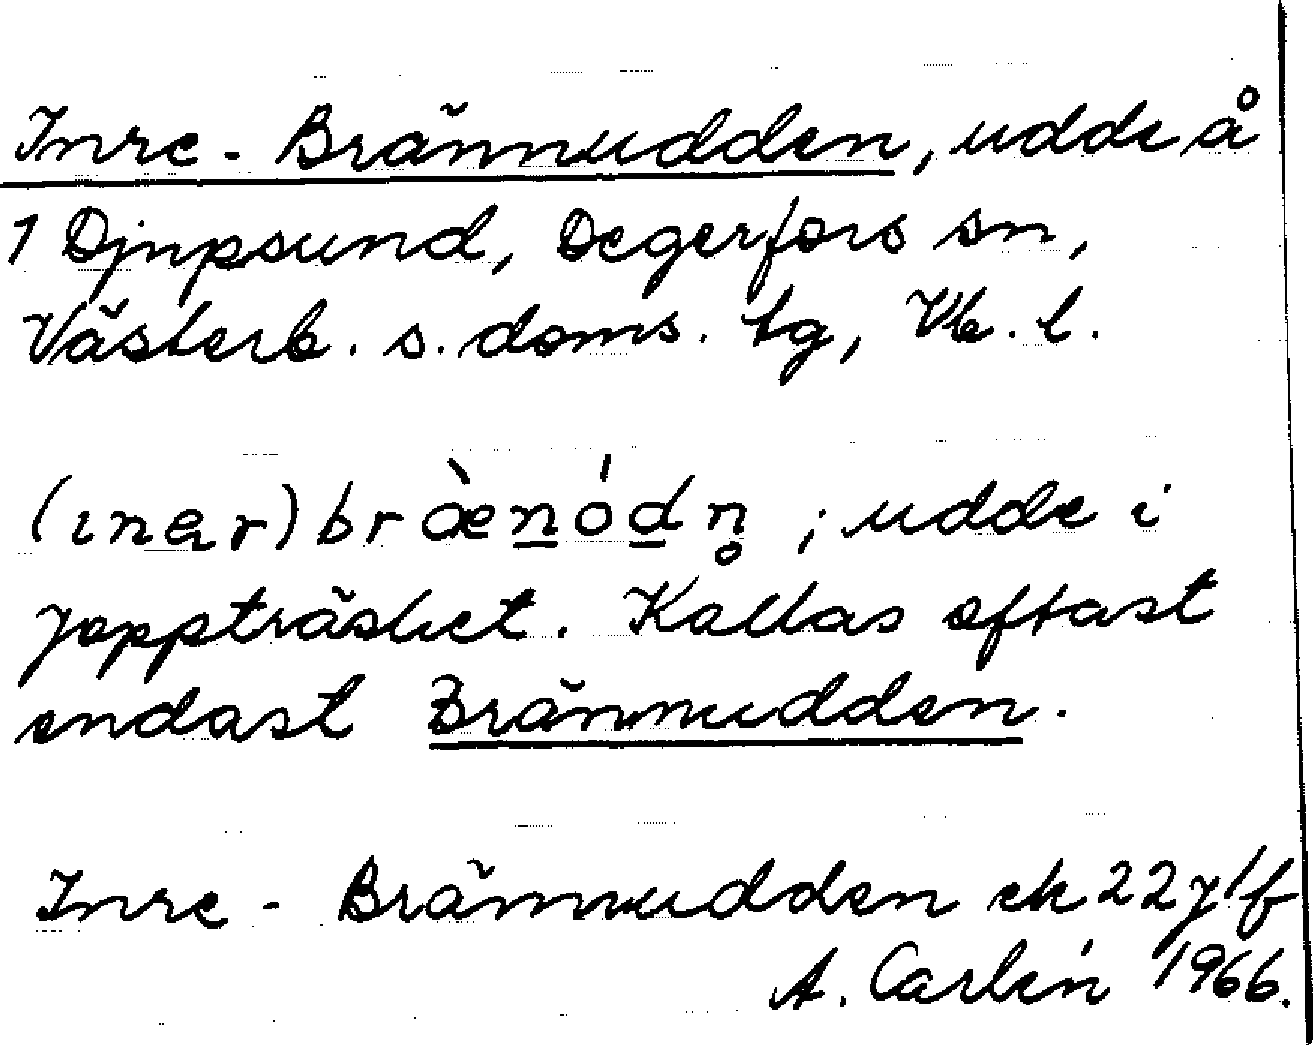 Inre-Brännudden, udde å
1 Djupsund, Degerfors sn,
Västerb. s. doms. tg, Vb. l.
(ıner)bræ̀nódn̥ ; udde i
Joppträsket. Kallas oftast
endast Brännudden.
Inre-Brännudden ek 22 J 1f
A. Carlén 1966.